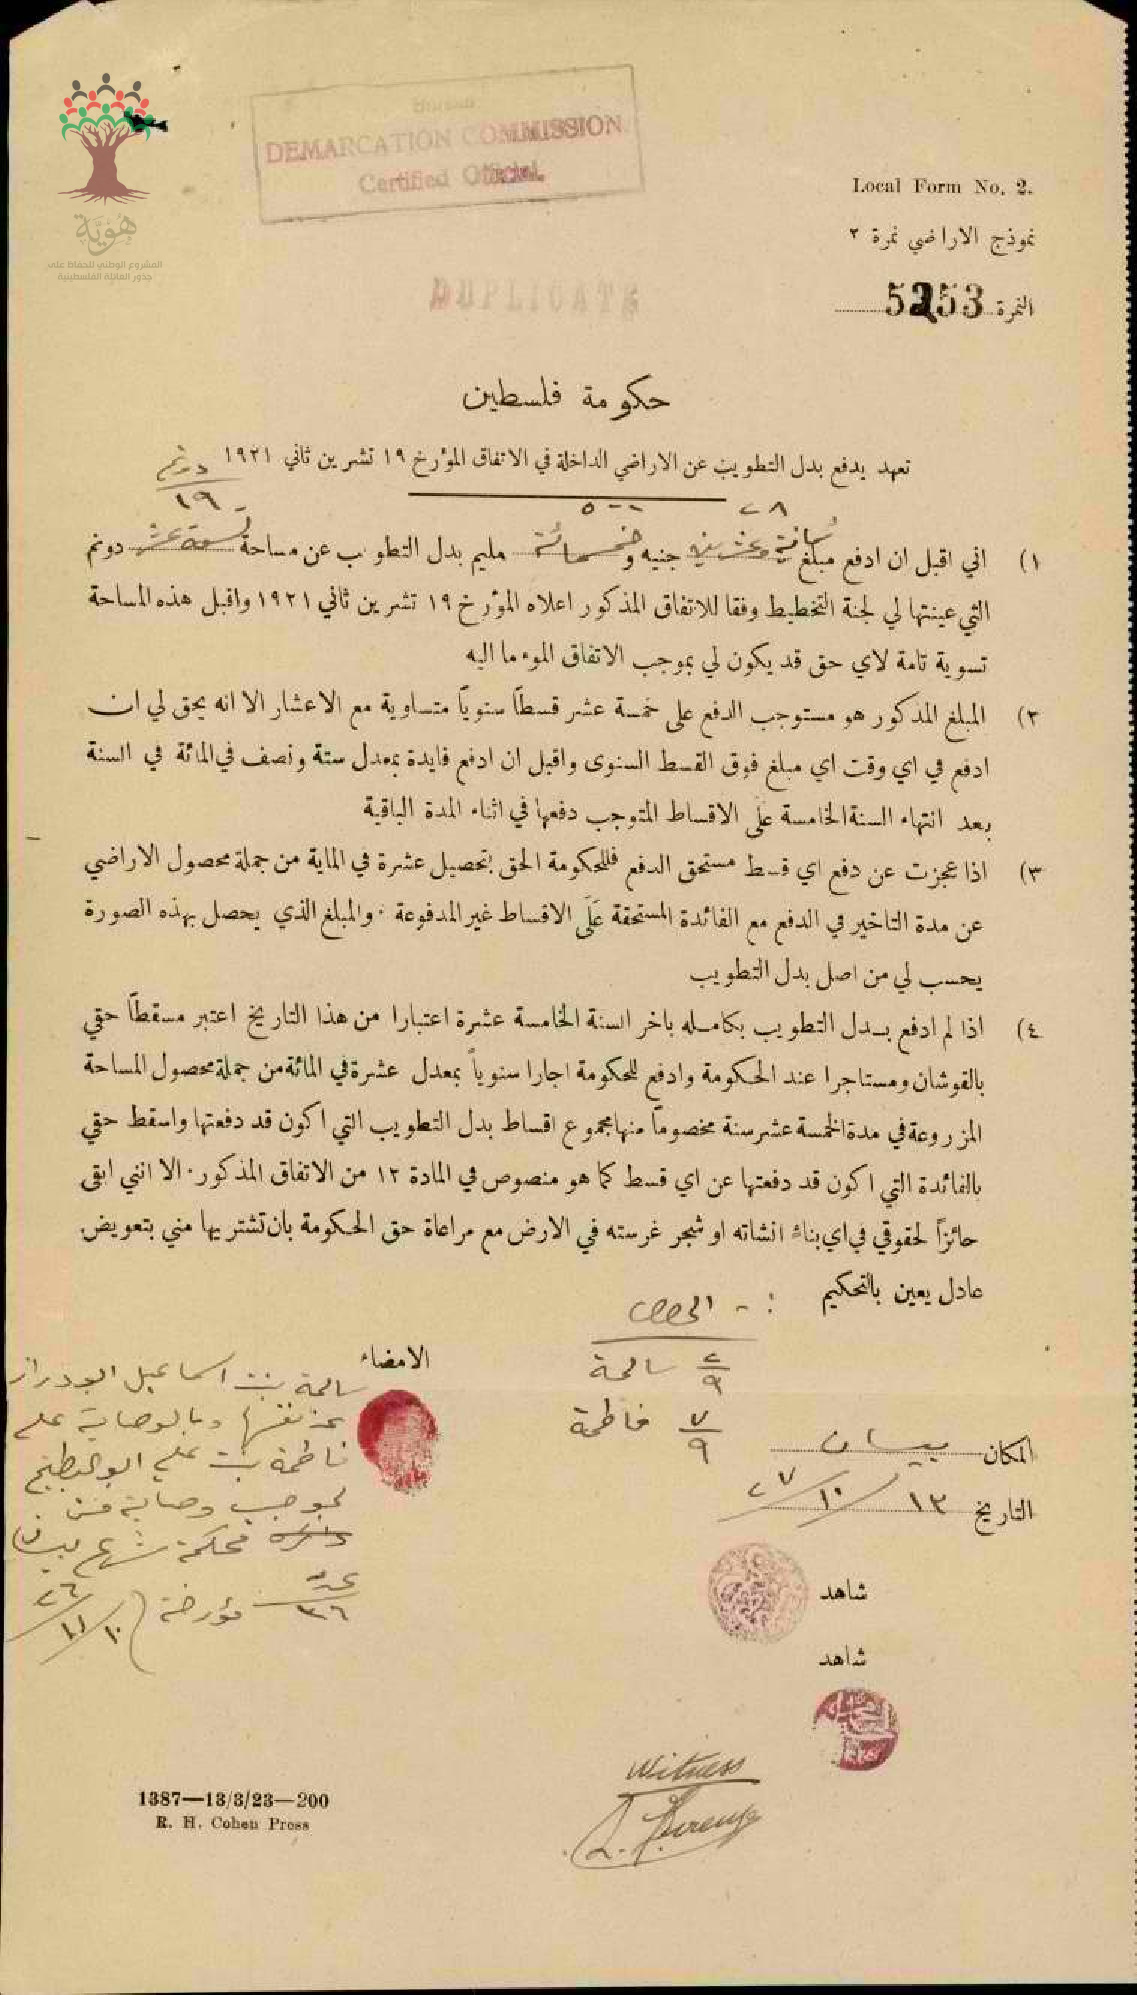 هُوِيَّة
المشروع الوطني للحفاظ على
جذور العائلة الفلسطينية
DEMARCATION COMMISSION
Certified Official.
DUPLICATE
Local Form No. 2.
نموذج الاراضي نمرة ٢
النمرة 5253
حكومة فلسطين
تعهد بدفع بدل التطويب عن الاراضي الداخلة في الاتفاق المؤرخ ١٩ تشرين ثاني ١٩٢١
دونم
١٩
٢٨ ٥٠٠
١) اني اقبل ان ادفع مبلغ ثمانية وعشرين جنيه وخمسمائة مليم بدل التطويب عن مساحة تسعة عشر دونم
التي عينتها لي لجنة التخطيط وفقا للاتفاق المذكور اعلاه المؤرخ ١٩ تشرين ثاني ١٩٢١ واقبل هذه المساحة
تسوية تامة لاي حق قد يكون لي بموجب الاتفاق الموء ما اليه
٢) المبلغ المذكور هو مستوجب الدفع على خمسة عشر قسطاً سنوياً متساوية مع الاعشار الا انه يحق لي ان
ادفع في اي وقت اي مبلغ فوق القسط السنوى واقبل ان ادفع فايدة بمعدل ستة ونصف في المائة في السنة
بعد انتهاء السنة الخامسة على الاقساط المتوجب دفعها في اثناء المدة الباقية
٣) اذا عجزت عن دفع اي قسط مستحق الدفع فللحكومة الحق بتحصيل عشرة في الماية من جملة محصول الاراضي
عن مدة التاخير في الدفع مع الفائدة المستحقة على الاقساط غير المدفوعة · والمبلغ الذي يحصل بهذه الصورة
يحسب لي من اصل بدل التطويب
٤) اذا لم ادفع بدل التطويب بكامله باخر السنة الخامسة عشرة اعتبارا من هذا التاريخ اعتبر مسقطاً حقي
بالقوشان ومستاجرا عند الحكومة وادفع للحكومة اجارا سنوياً بمعدل عشرة في المائة من جملة محصول المساحة
المزروعة في مدة الخمسة عشر سنة مخصوماً منها مجموع اقساط بدل التطويب التي اكون قد دفعتها واسقط حقي
بالفائدة التي اكون قد دفعتها عن اي قسط كما هو منصوص في المادة ١٢ من الاتفاق المذكور · الا انني ابقى
حائزاً لحقوقي في اي بناء انشاته او شجر غرسته في الارض مع مراعاة حق الحكومة بان تشتريها مني بتعويض
عادل يعين بالتحكيم
الحصص
٢/٩ سالحة
٧/٩ فاطمة
الامضاء
سالحة بنت اسماعيل ابو دراز
عن نفسها وبالوصاية على
فاطمة بنت علي ابو البطيخ
بموجب وصاية من
محكمة شرع بيسان
عدد ٣٦ مؤرخة ١٠/١١/٢٦
المكان بيسان
التاريخ ١٣/١٠/٢٧
شاهد
شاهد
Witness
1387—13/3/23—200
R. H. Cohen Press